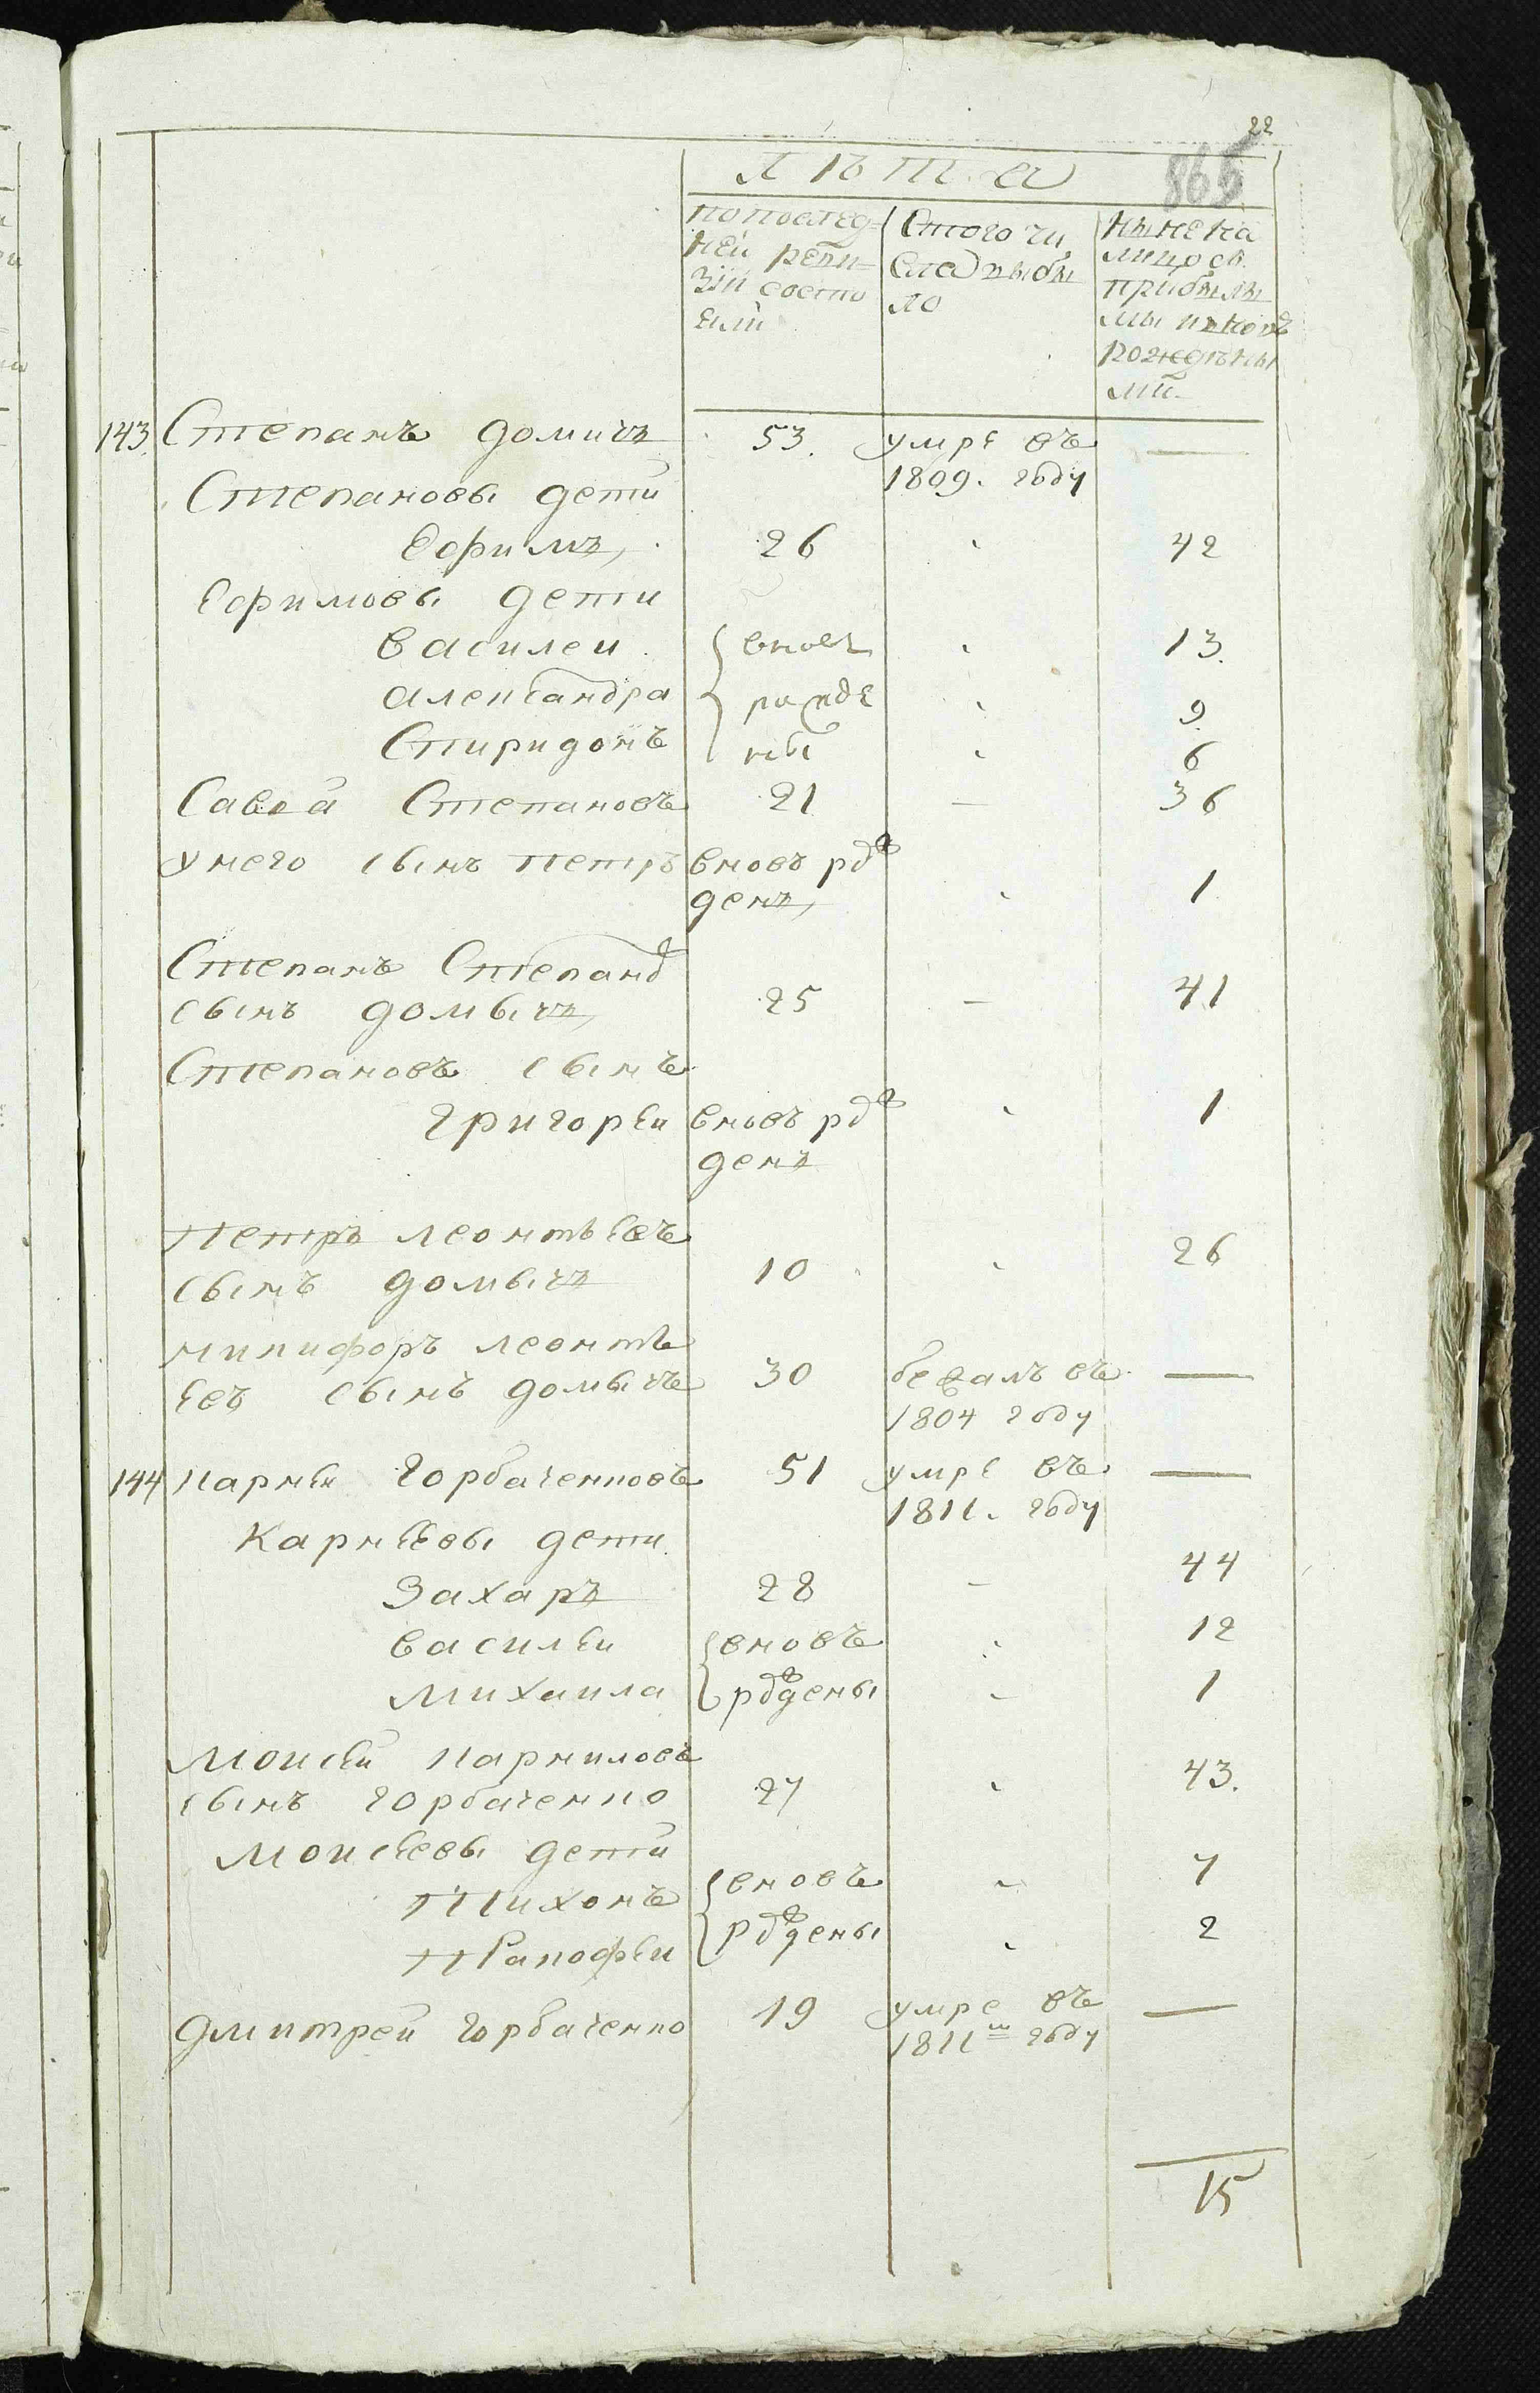 22
865
Лѣта
попослед-
ней реви-
зіи состо
яли
Стого чи
сла выбы
ло
ныне на
лицо съ
прибылы
ми и вновъ
рожденны
ми
143. Степанъ домичъ 53. умре въ —
1809. году
Степановы дети
Ефимъ, 26 42
Ефимовы дети
Василеи вновъ 13.
Александра рожде 9.
Спиридонъ ны 6
Сава Степановъ 21 — 36
унего сынъ петръ вновъ рож
денъ, 1
Степанъ Степанов
сынъ домычъ, 25 — 41
Степановъ сынъ
григорѣи вновъ рож 1
денъ
петръ леонтьѣвъ
сынъ домычъ 10 26
никифоръ леонтъ
ѣвъ сынъ домычъ 30 бежалъ въ —
1804 году
144 карнѣи горбаченковъ 51 умре въ —
1811. году
Карнѣевы дети
Захаръ 28 — 44
василѣи вновъ 12
михаила рождены 1
Моисѣй карниловъ
сынъ горбаченко 27 43.
Моисѣевы дети
Тихонъ вновъ 7
рождены 2
дмитрей горбаченко 19 умре въ —
1811м году
15